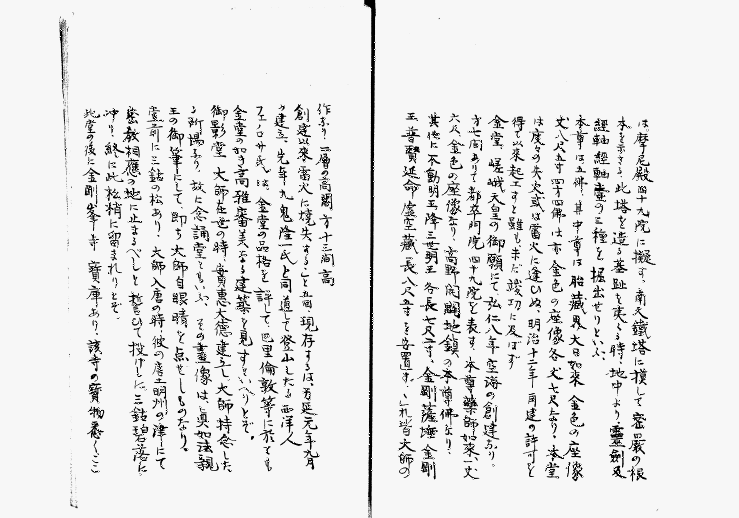 は、摩尼殿四十九院に擬す、南天鐵塔に摸して密嚴の根
本を示さる、此塔を造る基趾を夷らる時、地中より靈劍及
經軸經軸臺の三種を掘出せりといふ、
本尊は五佛、其中尊は胎藏界大日如來金色の座像
丈八尺五寸四方四佛は亦金色の座像各丈七尺なり、本堂
は度々の失火或は雷火に逢ひぬ、明治十二年再建の許可を
得て以來起工すと雖も未だ竣功に及ばず
金堂、嵯峨天皇の御願にて弘仁八年空海の創建なり。
方七間ありて都卒内院四十九院を表す、本尊藥師如來一丈
六尺金色の座像なり、高野開闢地鎭の本尊佛なり、
其他に不動明王降三世明王各長七尺二寸、金剛薩埵金剛
王普賢延命虛空藏長八尺五寸を安置す、これ皆大師の
作なり、二層の高閣方十三間高
創建以來雷火に境失すること五囘、現存するは、万延元年九月
の建立、先年九鬼隆一氏と同道して登山したる西洋人
フェノロサ氏は、金堂の品格を評して、巴里倫敦等に於ても
金堂の如き高雅審美なる建築を見ずといへりとぞ。
御影堂、大師在世の時、實惠大德建立し大師持念した
る所場なり、故に念誦堂ともいふ、その畫像は眞如法親
王の御筆にして、即ち大師自眼睛を点せしものなり。
堂前に三鈷の松あり、大師入唐の時、彼の唐土明州の津にて
密敎相應の地に止まるべしと誓ひて投げしに三鈷碧落に
冲り、終に此松梢に留まれりとぞ。
此堂の後に金剛峯寺寶庫あり、該寺の寶物悉くここ